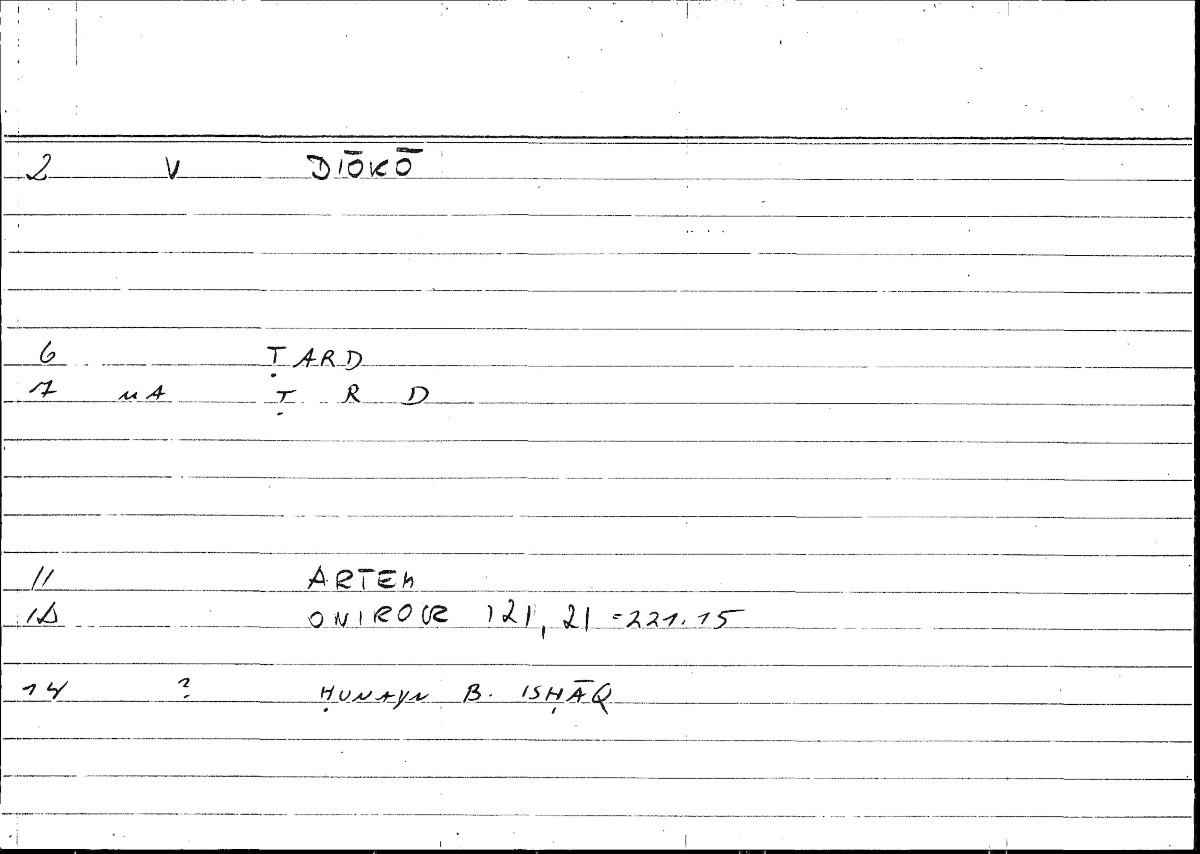 2 V DIŌKŌ
6 ṬARD
7 MA Ṭ R D
11 ARTEM
12 ONIROCR 121, 21 = 221.15
14 ? ḤUNAYN B. ISḤĀQ